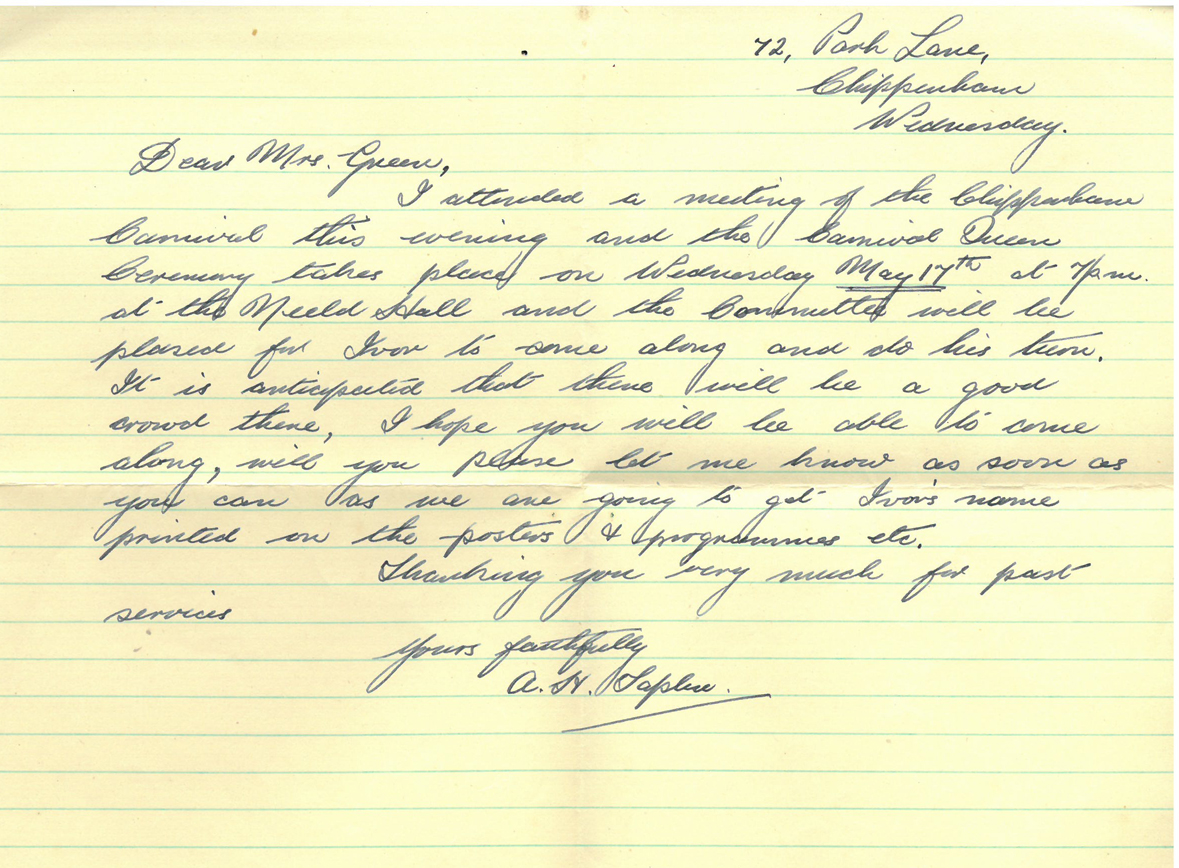 72, Park Lane,
Chippenham
Wednesday.
Dear Mrs. Green,
I attended a meeting of the Chippenham
Carnival this evening and the Carnival Queen
Ceremony takes place on Wednesday May 17th at 7pm.
at the Neeld Hall and the Committee will be
pleased for Ivor to come along and do his turn.
It is anticipated that there will be a good
crowd there, I hope you will be able to come
along, will you please let me know as soon as
you can as we are going to get Ivor's name
printed on the posters & programmes etc.
Thanking you very much for past
services
Yours faithfully
A. H. Taplin.